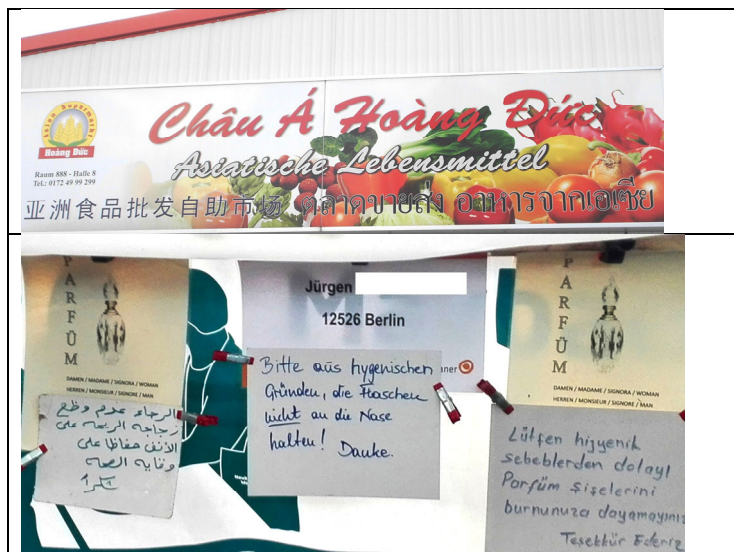 Châu Á Hoàng Đức
Asiatische Lebensmittel
Asian Supermarkt
Hoàng Đức
Raum 888 - Halle 8
Tel.: 0172 49 99 299
亚洲食品批发自助市场 ตลาดขายส่ง อาหารจากเอเซีย
PARFÜM
DAMEN / MADAME / SIGNORA / WOMAN
HERREN / MONSIEUR / SIGNORE / MAN
الرجاء عدم وضع
زجاجة الريحه على
الأنف حفاظا على
وقايه الصحه
شكراً
Jürgen
12526 Berlin
Bitte aus hygenischen
Gründen, die Flaschen
nicht an die Nase
halten! Danke.
PARFÜM
DAMEN / MADAME / SIGNORA / WOMAN
HERREN / MONSIEUR / SIGNORE / MAN
Lütfen hijyenik
sebeblerden dolayı
Parfüm Şişelerini
burnunuza dayamayınız
Teşekkür Ederiz